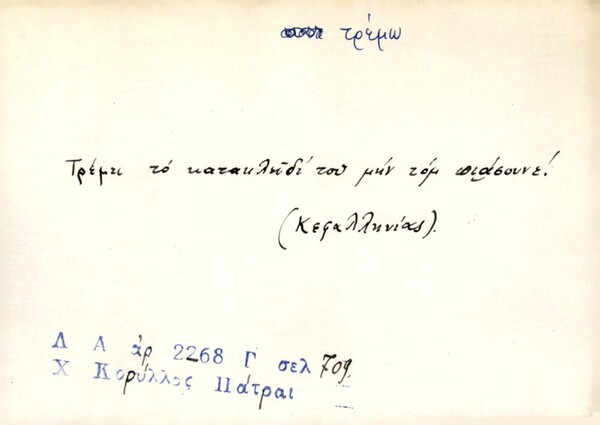 τρέμω
Τρέμει τό κατακλεῖδί του μήν τόμ πιάσουνε!
(Κεφαλληνίας).
Λ Α ἀρ 2268 Γ σελ 709
Χ Κορύλλος Πάτραι